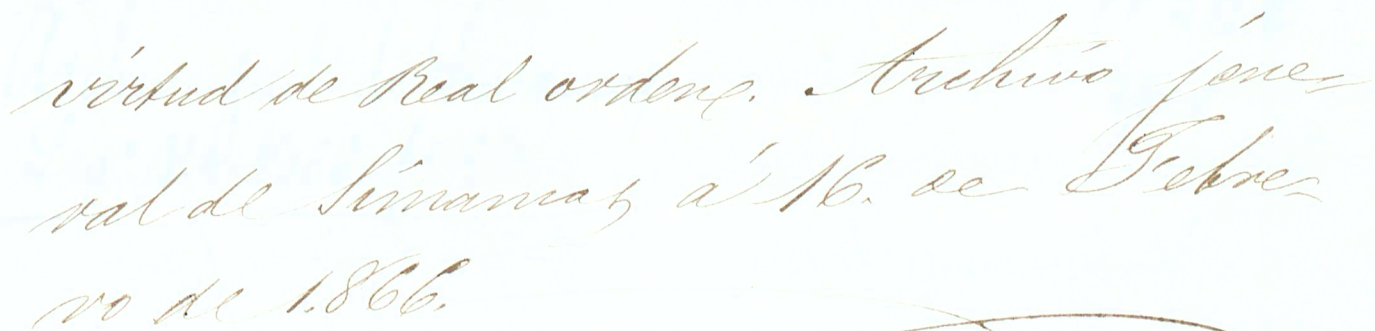 virtud de Real orden. Archivo jene-
ral de Simancas, á 16. de Febre-
ro de 1.866.